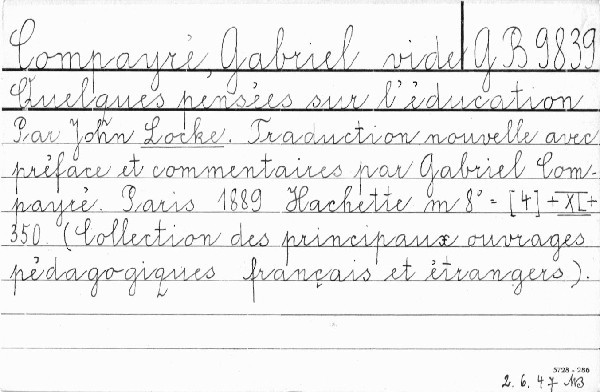 Compayré, Gabriel vide GB9839
Quelques pensées sur l'éducation
Par John Locke. Traduction nouvelle avec
préface et commentaires par Gabriel Com-
payré. Paris 1889 Hachette m 8° = [4] + XL +
350. (Collection des principaux ouvrages
pédagogiques français et étrangers).
5728 - 286
2.6.47 MB